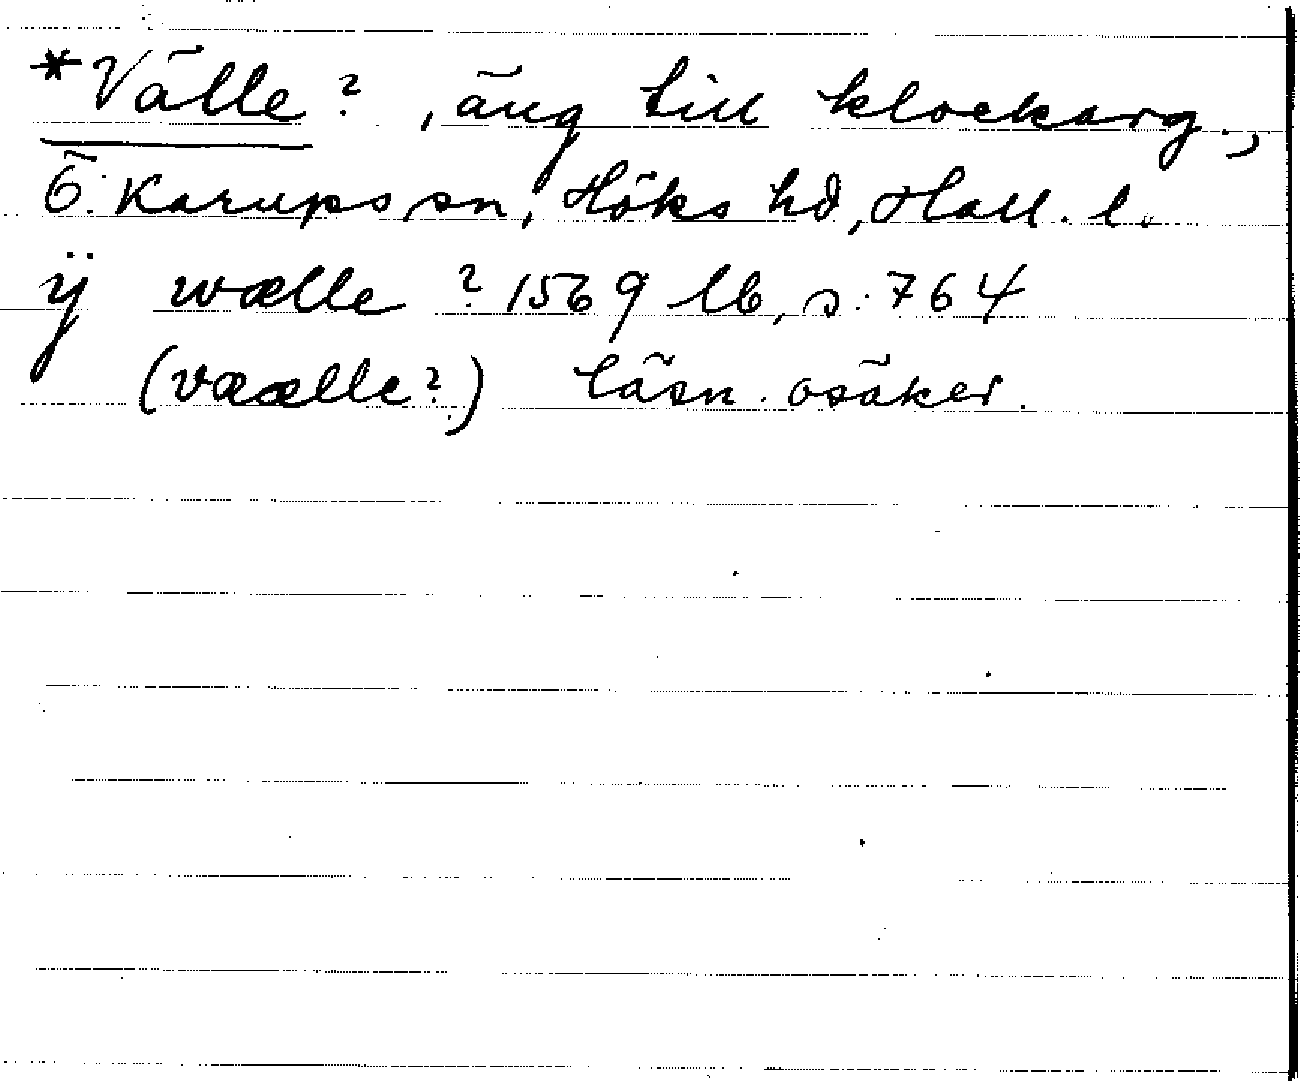 *Välle?, äng till klockarg.,
Ö. Karups sn, Höks hd, Hall. l.
ÿ wælle? 1569 lb, s. 764
(væælle?) läsn. osäker.